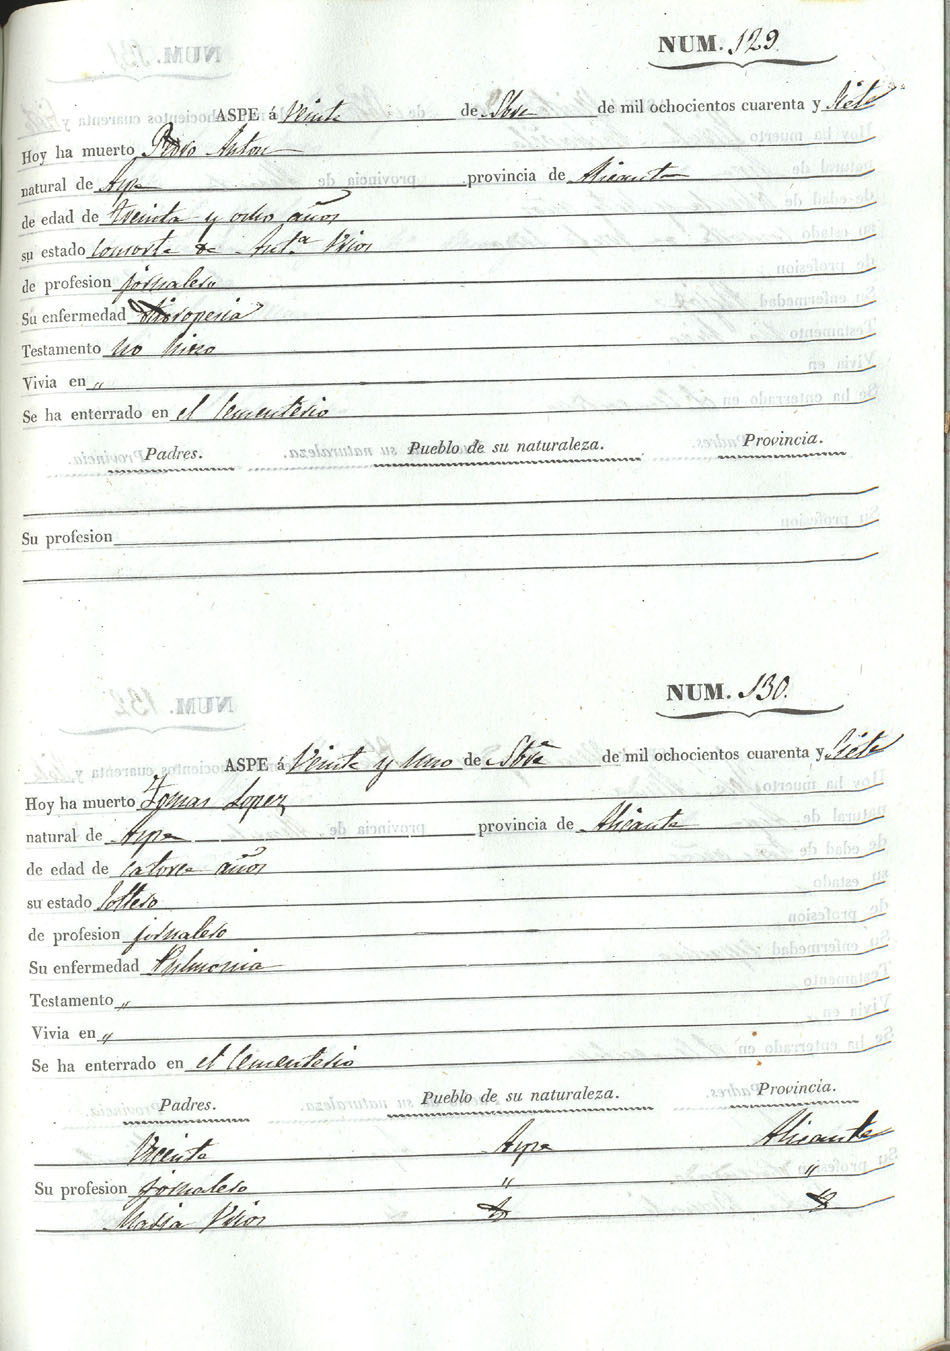 NUM. 129
ASPE á Veinte de Sbre de mil ochocientos cuarenta y Siete
Hoy ha muerto Pedro Anton
natural de Aspe provincia de Alicante
de edad de treinta y ocho años
su estado consorte de Ant.ª
de profesion jornalero
Su enfermedad
Testamento no hizo
Vivia en "
Se ha enterrado en el Cementerio
Padres. Pueblo de su naturaleza. Provincia.
Su profesion
NUM. 130.
ASPE á Veinte y Uno de Sbre de mil ochocientos cuarenta y Siete
Hoy ha muerto Tomas Lopez
natural de Aspe provincia de Alicante
de edad de catorce años
su estado Soltero
de profesion jornalero
Su enfermedad Pulmonia
Testamento "
Vivia en "
Se ha enterrado en el Cementerio
Padres. Pueblo de su naturaleza. Provincia.
Vicente Aspe Alicante
Su profesion jornalero " "
Maria